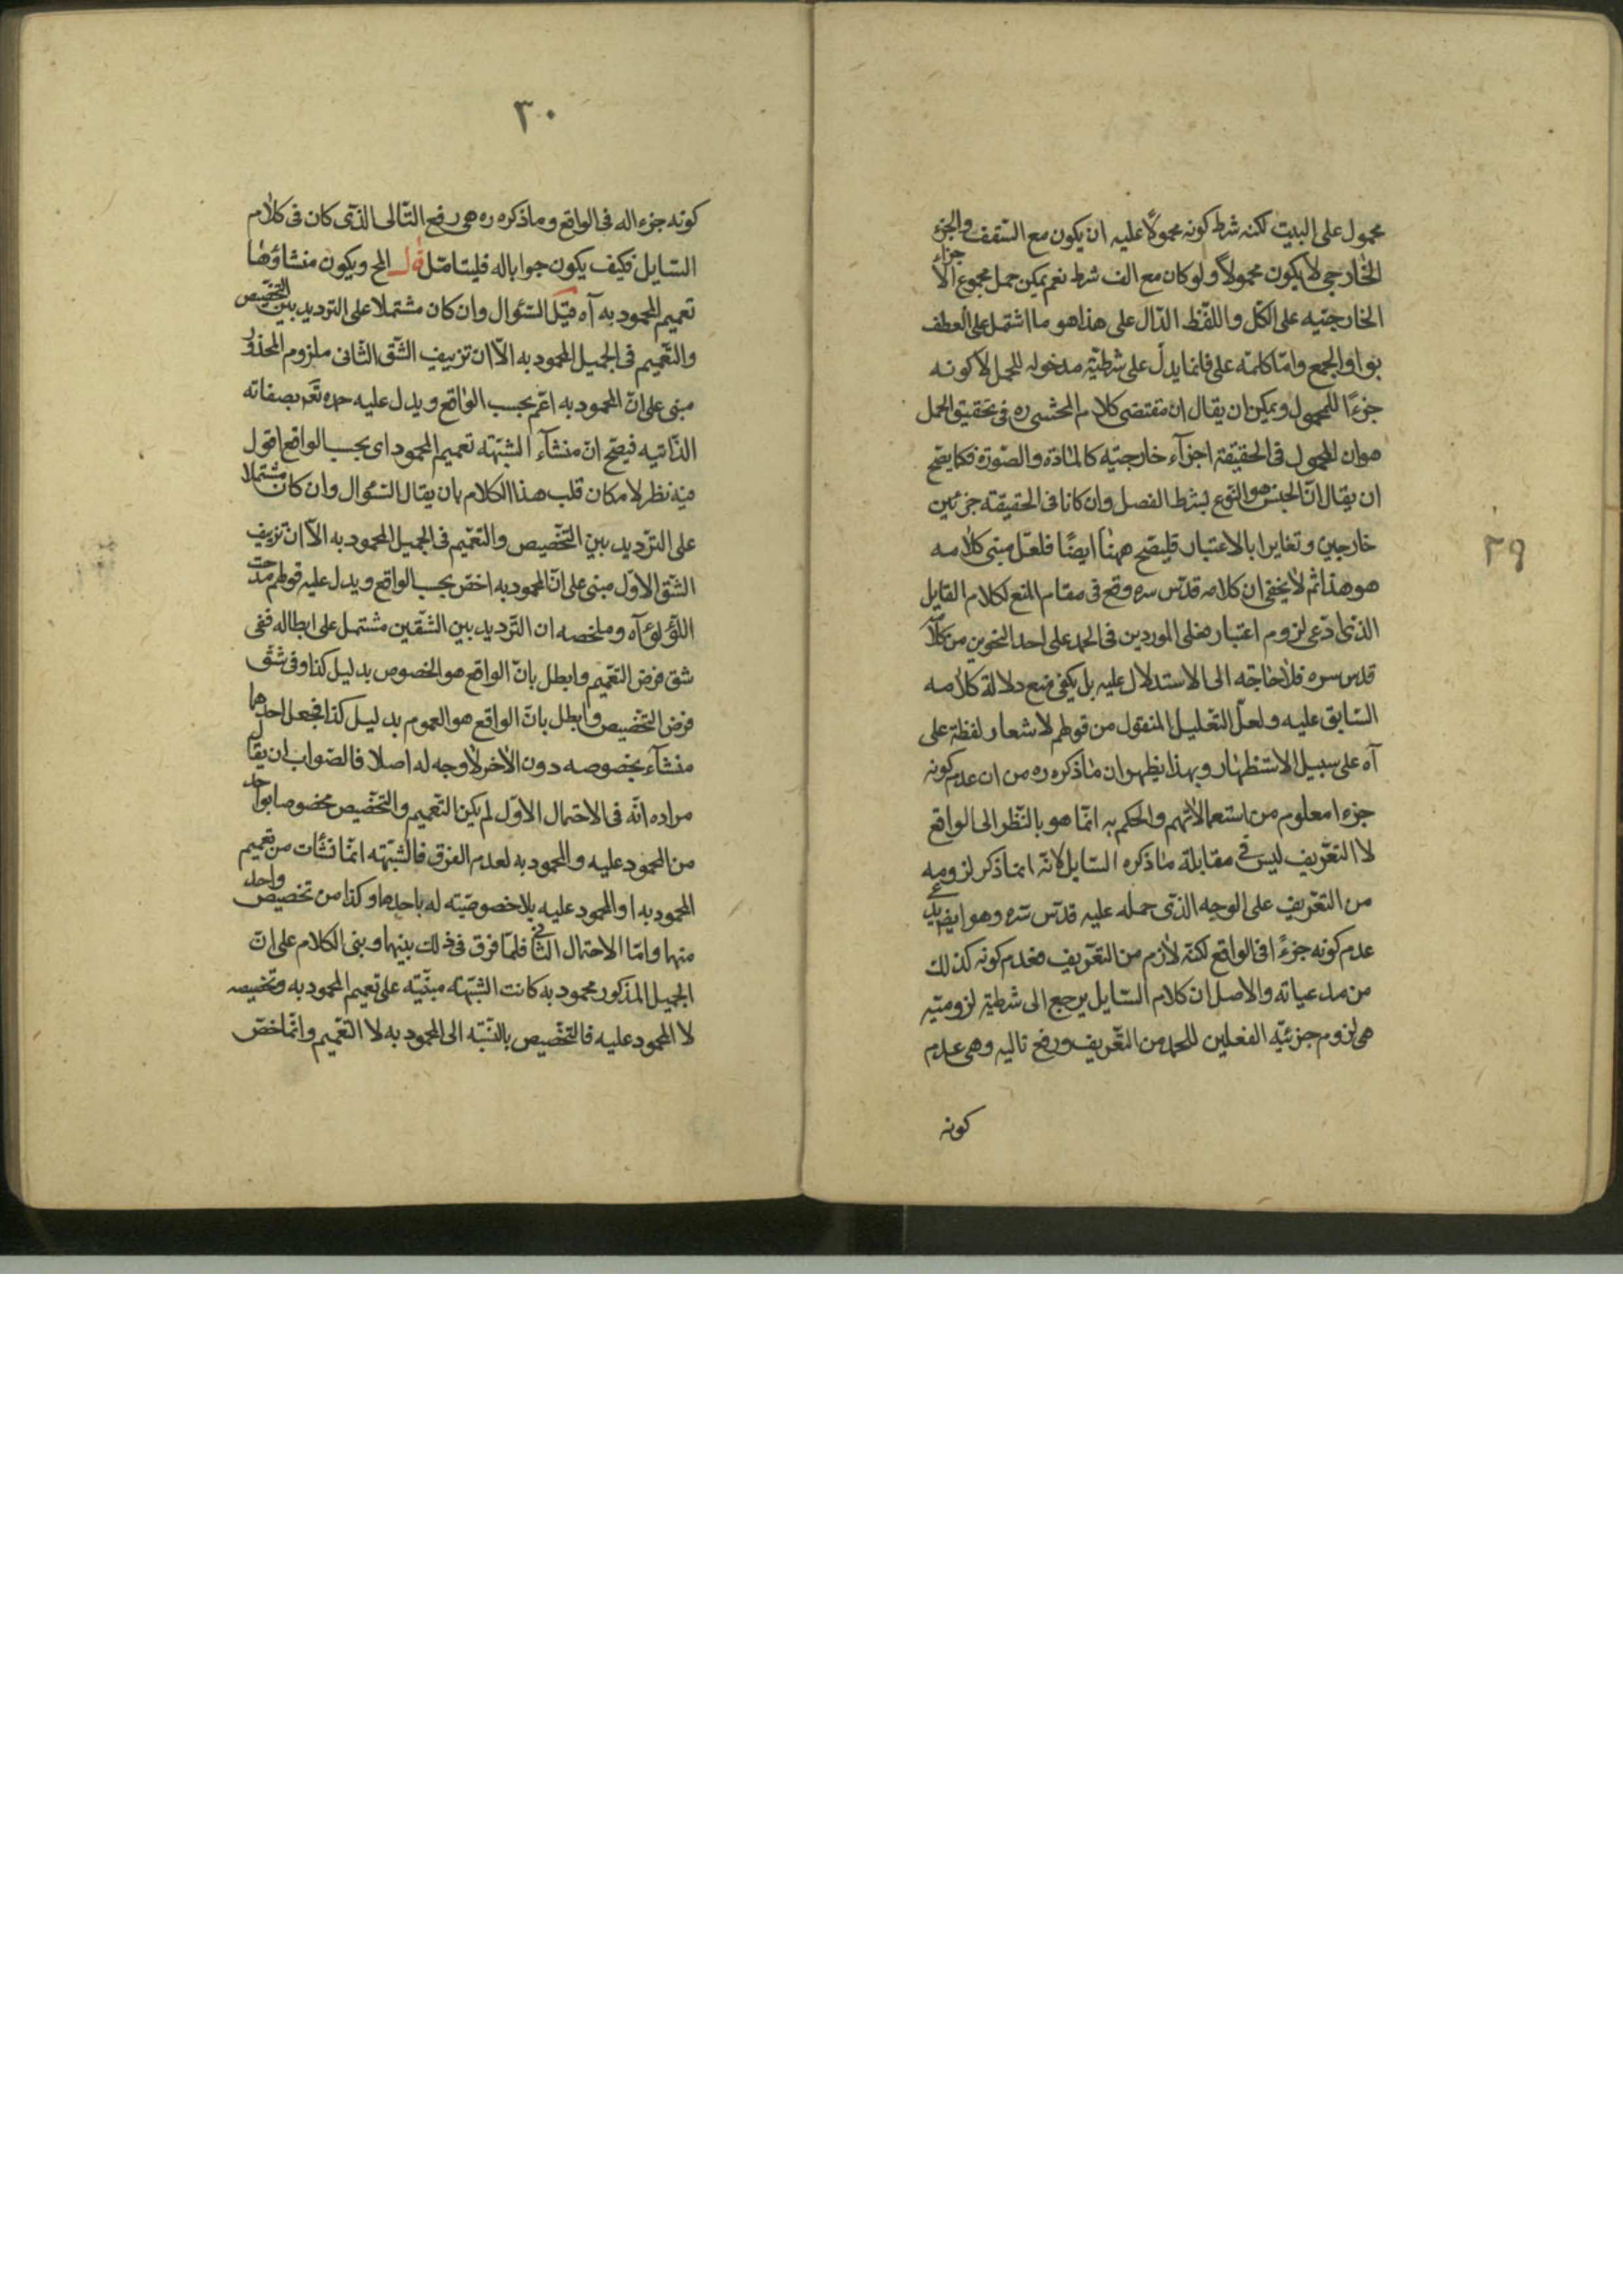 محمول على البيت لكنه شرط كونه محمولًا عليه ان يكون مع السقف والجزء
الخارجى لا يكون محمولًا ولو كان مع الف شرط نعم يمكن حمل مجموع الاجزاء
الخارجيّه على الكلّ واللفظ الدّال على هذا هو ما اشتمل على العطف
بواو الجمع وامّا كلمه على فانما يدلّ على شرطيّة مدخوله للحمل لا كونه
جزءًا للمحمول ويمكن ان يقال ان مقتضى كلام المحشى ره فى تحقيق الحمل
هو ان المحمول فى الحقيقة اجزآء خارجيّه كالمادّة والصّورة فكما يصح
ان يقال انّ الجنس هو النّوع بشرط الفصل وان كانا فى الحقيقة جزئين
خارجين وتغايرا بالاعتبار فليصح ههنا ايضًا فلعلّ مبنى كلامه
هو هذا ثم لا يخفى ان كلامه قدّس سره وقع فى مقام المنع لكلام القايل
الذى ادّعى لزوم اعتبار فعلى الموردين فى الحمد على احد النحوين من كلام
قدس سره فلا حاجة الى الاستدلال عليه بل يكفى منع دلالة كلامه
السّابق عليه ولعلّ التعليل المنقول من قولهم لاشعار لفظة على
آه على سبيل الاستظهار وبهذا يظهر ان ما ذكره ره من ان عدم كونه
جزءا معلوم من استعمالاتهم والحكم به انّما هو بالنّظر الى الواقع
لا التعّريف ليس فى مقابلة ما ذكره السّايل لانّه انما ذكر لزومه
من التعّريف على الوجه الذى حمله عليه قدّس سّره وهو ايضا يدعى
عدم كونه جزءً افى الواقع لكنّه لازم من التعّريف فعدم كونه كذلك
من مدعياته والاصل ان كلام السّايل يرجع الى شرطية لزوميّه
هى لزوم جزئيّه الفعلين للحمد من التعّريف ورفع تاليه وهى عدم
كونه
٢٩
٣٠
كونه جزء اله فى الواقع وما ذكره ره هى رفع التّالى الذى كان فى كلام
السّايل فكيف يكون جوابا له فليتامّل قوله المح ويكون منشاؤها
تعميم المحمود به آه قيل السّؤال وان كان مشتملا على الترديد بين التخصيص
والتعّميم فى الجميل المحمود به الّا ان تزييف الشّق الثّانى ملزوم المحذور
مبنى على انّ المحمود به اعّم بحسب الواقع ويدل عليه حمده تعّ بصفاته
الذّاتيه فيصّح انّ منشآء الشبّهة تعميم المحمود اى بحسب الواقع اقول
فيه نظر لامكان قلب هذا الكلام بان يقال السّؤال وان كان مشتملا
على الترّديد بين التخّصيص والتعّميم فى الجميل المحمود به الّا ان تزييف
الشّق الاوّل مبنى على انّ المحمود به اخصّ بحسب الواقع ويدل عليه قولهم مدحت
اللّؤلؤ آه وملخصه ان التّرديد بين الشّقين مشتمل على ابطاله ففى
شق فرض التعّميم وابطل بانّ الواقع هو الخصوص بدليل كذا وفى شّق
فرض التخّصيص وابطل بانّ الواقع هو العموم بدليل كذا فجعل احدهما
منشآء بخصوصه دون الاخر لا وجه له اصلا فالصّواب ان يقال
مراده انّه فى الاحتمال الاوّل لم يكن التّعميم والتخّصيص مخصوصا بواحد
من المحمود عليه والمحمود به لعدم الفرق فالشبّهة انمّا نشأت من تعميم
المحمود به او المحمود عليه بلا خصوصيّته له باحدهما وكذا من تخصيص واحد
منهما وامّا الاحتمال الثّانى فلمّا فرق فى ذلك بينهما وبنى الكلام على انّ
الجميل المذكور محمود به كانت الشبّهة مبنيّه على تعميم المحمود به وتخصيصه
لا المحمود عليه فالتخّصيص بالنّسبّه الى المحمود به لا التعّميم وانّما خصّ